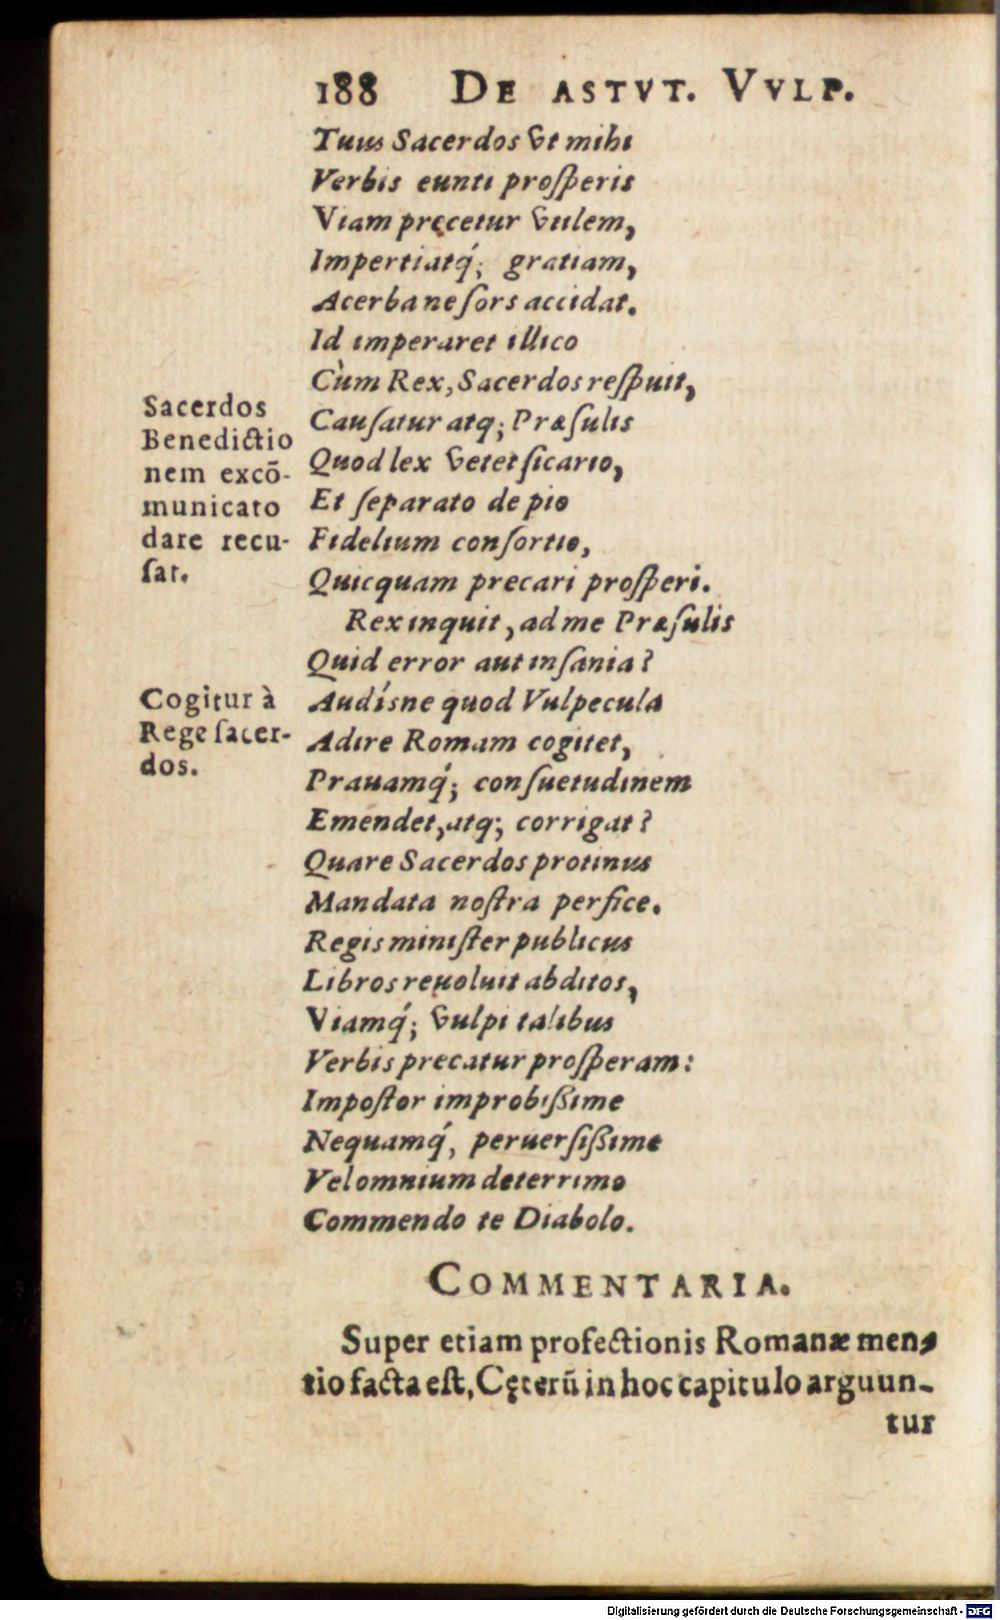 188 DE ASTVT. VVLP.
Tuus Sacerdos vt mihi
Verbis eunti proſperis
Viam pręcetur vtilem,
Impertiatq́; gratiam,
Acerba ne ſors accidat.
Id imperaret illico
Cùm Rex, Sacerdos reſpuit,
Cauſatur atq; Præſulis
Quod lex vetet ſicario,
Et ſeparato de pio
Fidelium conſortio,
Quicquam precari proſperi.
Sacerdos
Benedictio
nem excō-
municato
dare recu-
ſat.
Rex inquit, ad me Præſulis
Quid error aut inſania?
Audísne quod Vulpecula
Adire Romam cogitet,
Prauamq́; conſuetudinem
Emendet, atq; corrigat?
Quare Sacerdos protinus
Mandata noſtra perfice.
Cogitur à
Rege ſacer-
dos.
Regis miniſter publicus
Libros reuoluit abditos,
Viamq́; vulpi talibus
Verbis precatur proſperam:
Impoſtor improbißime
Nequamq́, peruerſißime
Vel omnium deterrimo
Commendo te Diabolo.
COMMENTARIA.
Super etiam profectionis Romanæ men-
tio facta eſt, Cęterū in hoc capitulo arguun-
tur
Digitalisierung gefördert durch die Deutsche Forschungsgemeinschaft - DFG